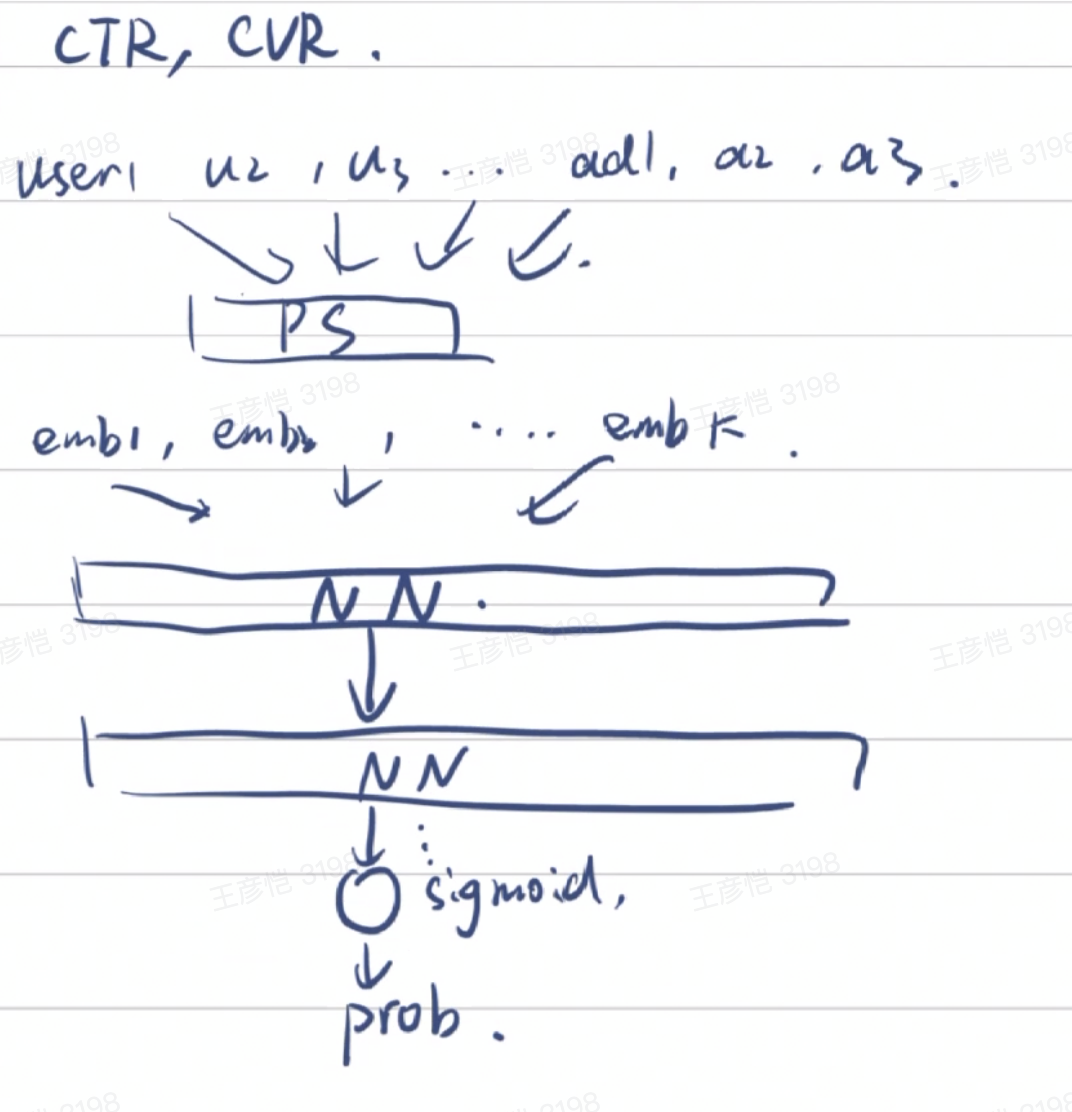 CTR, CVR.
user1 u2, u3 ... ad1, a2, a3.
PS
emb1, emb2, .... emb k.
NN.
NN
sigmoid,
prob.
王彦恺 3198